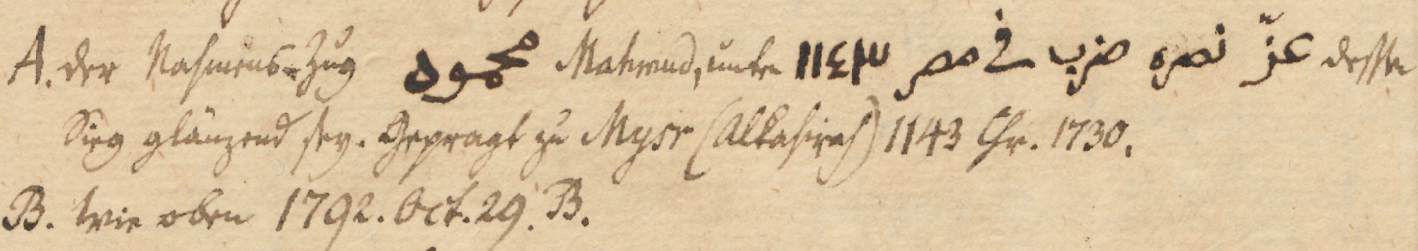 A. der Nahmens-Zug محمود Mahmud, unten عزّ نصره ضرب في مصر ١١٤٣ dessen
Sieg glänzend sey. Gepragt zu Mysr (Alkahirah) 1143 Chr. 1730.
B. wie oben 1792. Oct. 29. B.